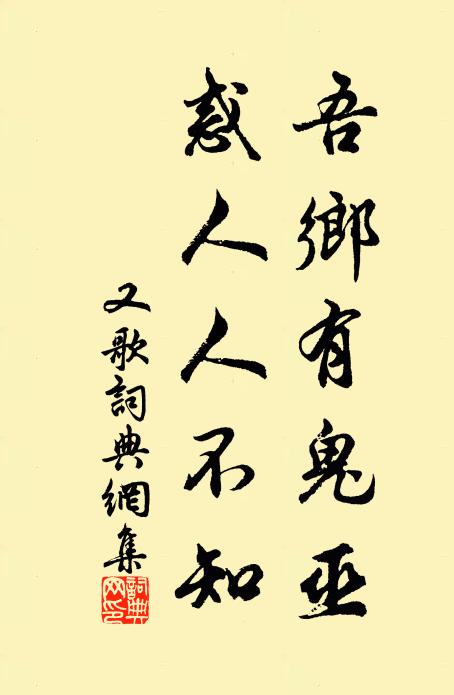 吾鄉有鬼巫
惑人人不知
又歌詞典網集
詞典
网印